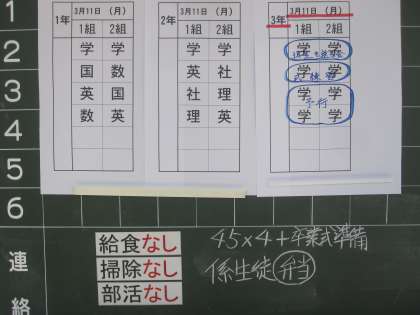 1
2
3
4
5
6
連
絡
1年
3月11日（月）
1組 2組
学 学
国 数
英 国
数 英
2年
3月11日（月）
1組 2組
学 学
英 社
社 理
理 英
3年
3月11日（月）
1組 2組
学 学
学 学
学 学
予行
学 学
給食なし
掃除なし
部活なし
45×4+卒業式準備
係生徒 弁当